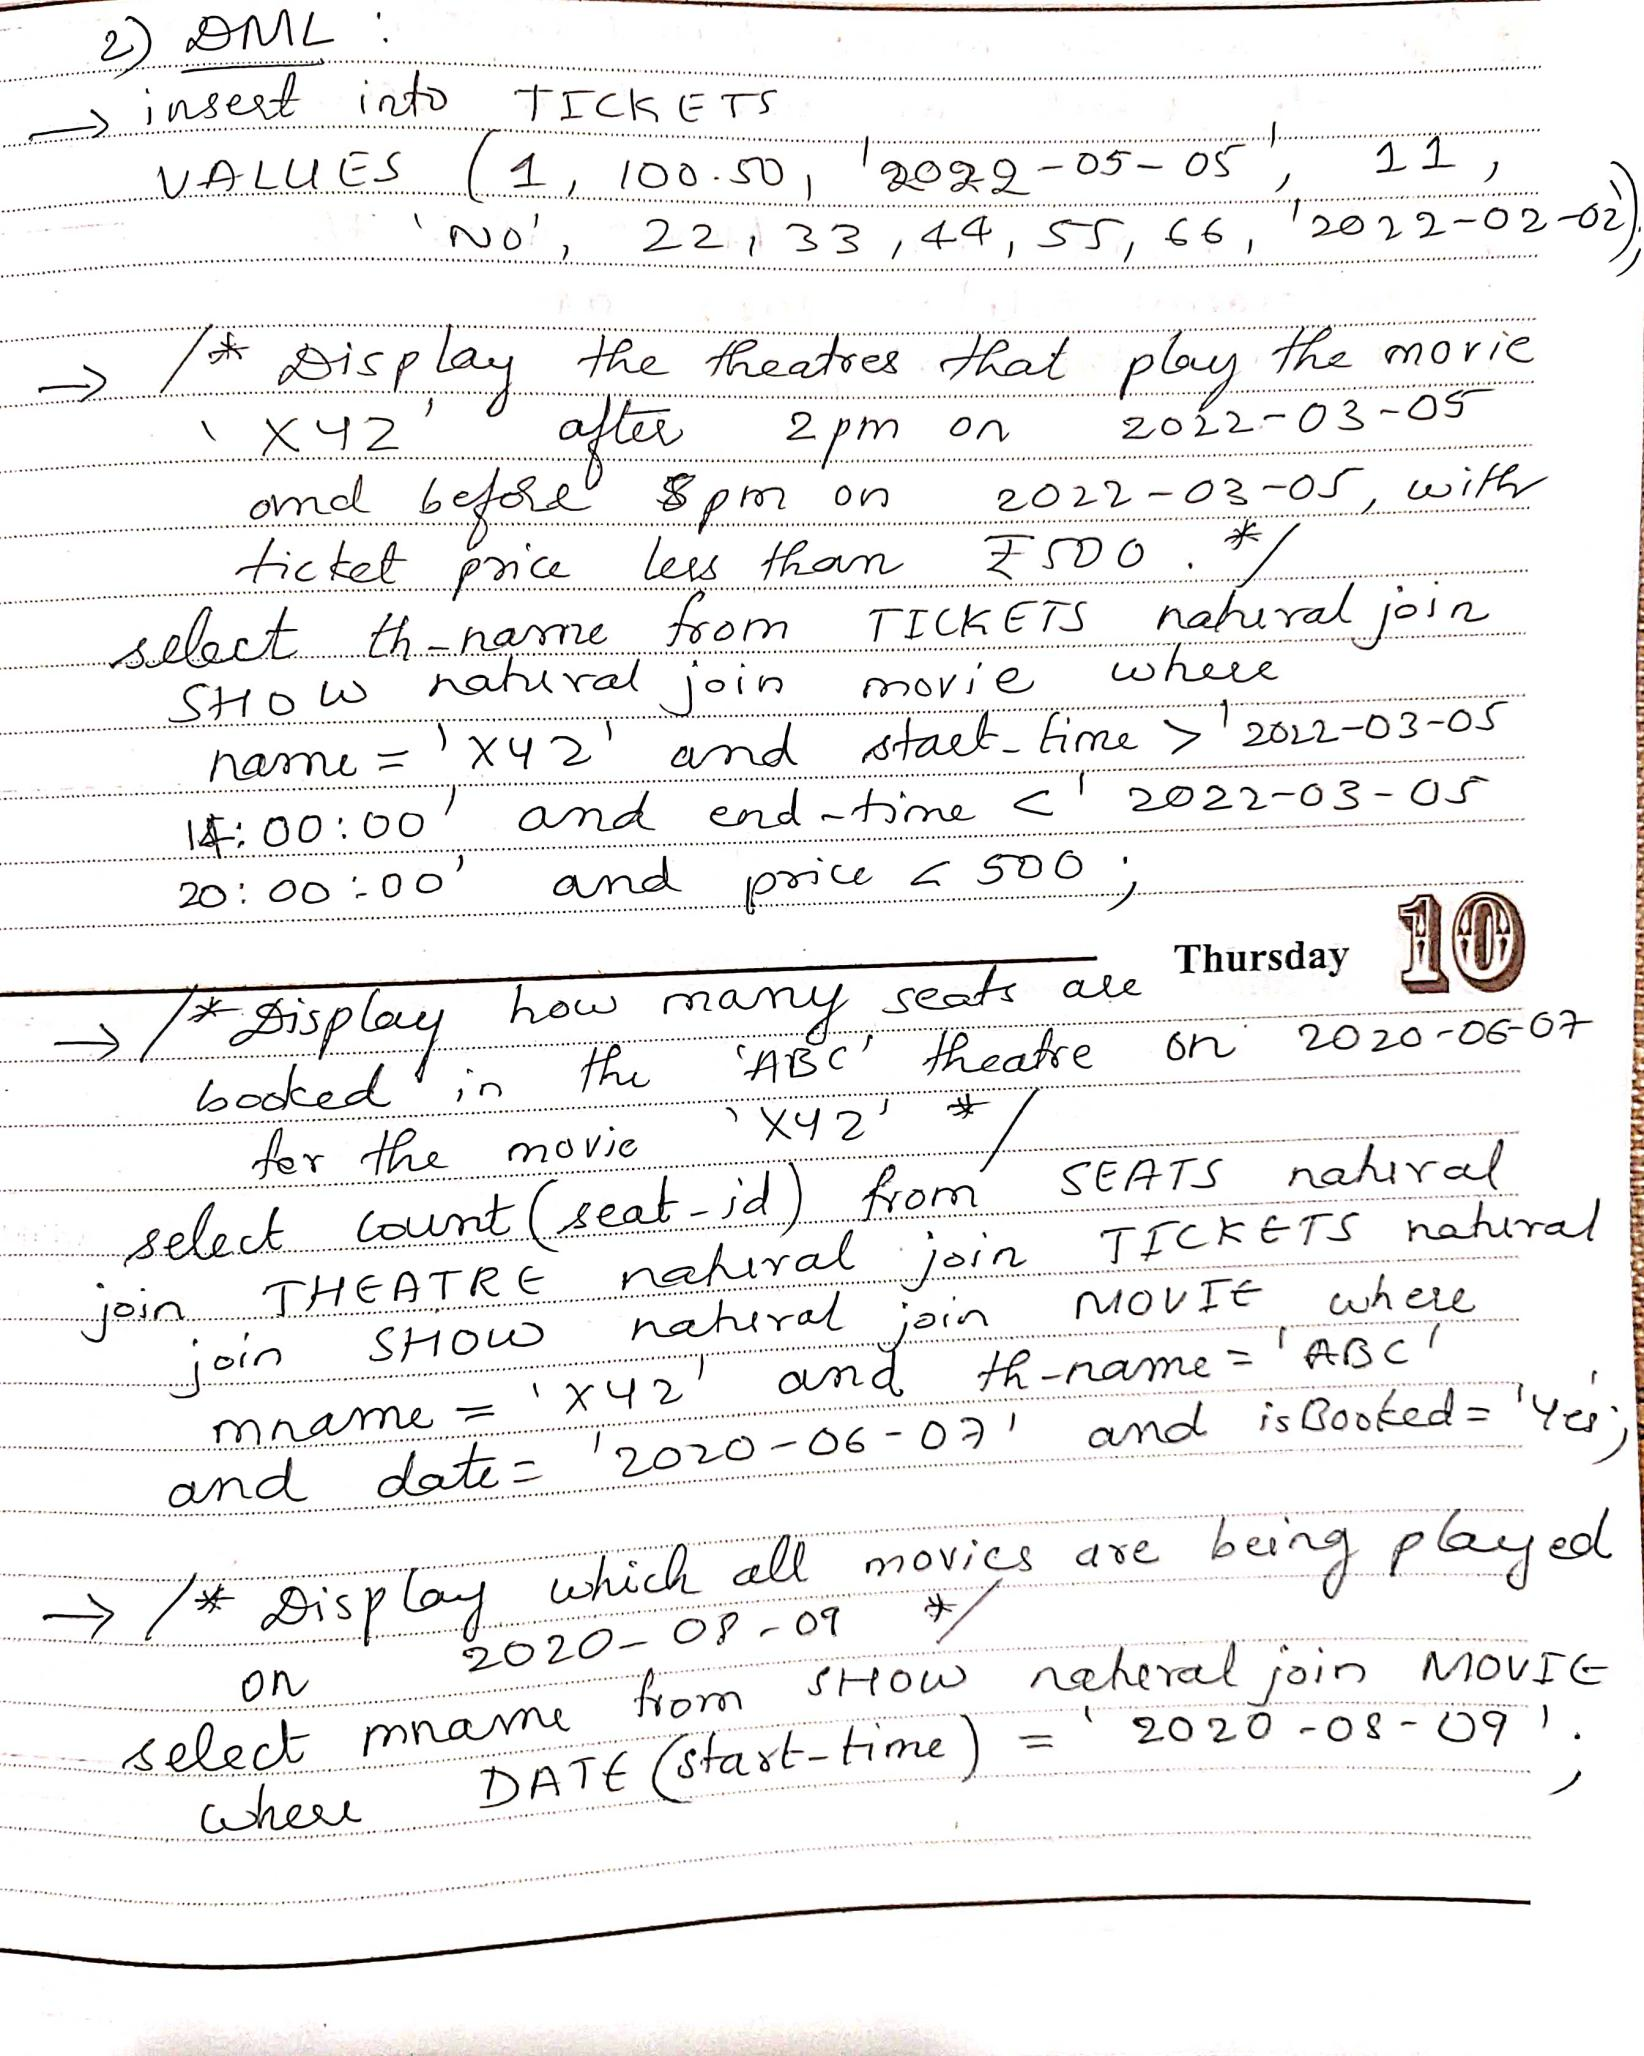 2) DML :
→ insert into TICKETS
VALUES (1, 100.50, '2022-05-05', 11,
'NO', 22, 33, 44, 55, 66, '2022-02-02');
→ /* Display the theatres that play the movie
'XYZ' after 2pm on 2022-03-05
and before 8pm on 2022-03-05, with
ticket price less than ₹500. */
select th-name from TICKETS natural join
SHOW natural join movie where
name = 'XYZ' and start-time > '2022-03-05
14:00:00' and end-time < '2022-03-05
20:00:00' and price < 500;
Thursday 10
→ /* Display how many seats are
booked in the 'ABC' theatre on 2020-06-07
for the movie 'XYZ' */
select count(seat-id) from SEATS natural
join THEATRE natural join TICKETS natural
join SHOW natural join MOVIE where
mname = 'XYZ' and th-name = 'ABC'
and date = '2020-06-07' and isBooked = 'Yes';
→ /* Display which all movies are being played
on 2020-08-09 */
select mname from SHOW natural join MOVIE
where DATE(start-time) = '2020-08-09';